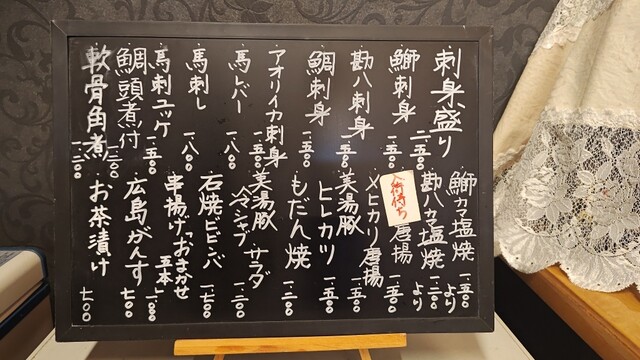 刺身盛り 二五〇〇
鰤刺身 一五〇〇
勘八刺身 一五〇〇
鯛刺身 一五〇〇
アオリイカ刺身 一五〇〇
馬レバー 一八〇〇
馬刺し 一八〇〇
馬刺ユッケ 一五〇〇
鯛頭煮付 一二〇〇
軟骨角煮 一二〇〇
鰤カマ塩焼 一五〇〇より
勘八カマ塩焼 一二〇〇より
入荷待ち
唐揚 一五〇〇
メヒカリ唐揚 一五〇〇
美湯豚ヒレカツ 一五〇〇
もだん焼 一二〇〇
美湯豚冷シャブサラダ 一二〇〇
石焼ビビンバ 一七〇〇
串揚げっおまかせ 五本 一〇〇〇
広島がんす 七〇〇
お茶漬け 七〇〇